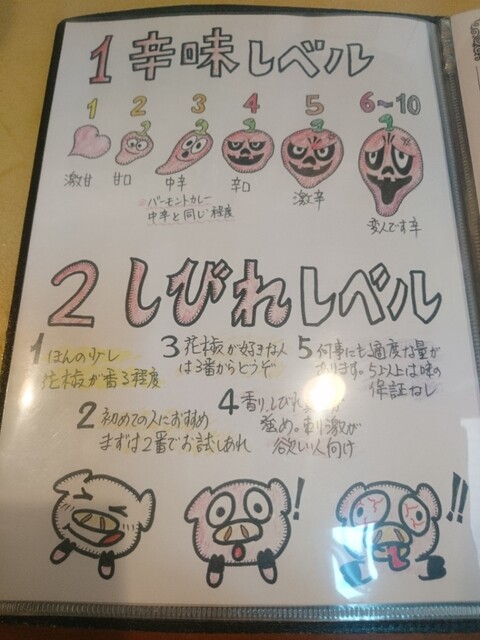 1 辛味レベル
1 2 3 4 5 6～10
激甘 甘口 中辛 辛口 激辛 変人です辛
※バーモントカレー
中辛と同じ程度
2 しびれレベル
1 ほんの少し
花椒が香る程度
2 初めての人におすすめ
まずは2番でお試しあれ
3 花椒が好きな人
は3番からどうぞ
4 香り、しびれ
強め。刺激が
欲しい人向け
5 何事にも適度な量が
あります。5以上は味の
保証なし
!
!!